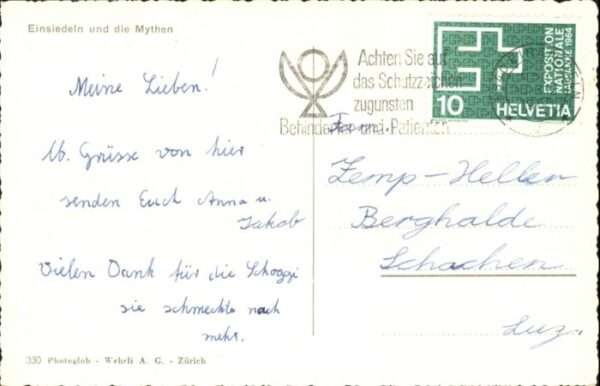 Einsiedeln und die Mythen
Meine Lieben!
lb. Grüsse von hier
senden Euch Anna u.
Jakob
Vielen Dank für die Schoggi
sie schmeckte nach
mehr.
330 Photoglob - Wehrli A. G. - Zürich
Achten Sie auf
das Schutzzeichen
zugunsten
Behinderter und Patienten
EXPOSITION
NATIONALE
LAUSANNE 1964
10 HELVETIA
Fam.
Zemp-Heller
Berghalde
Schachen
Luz.